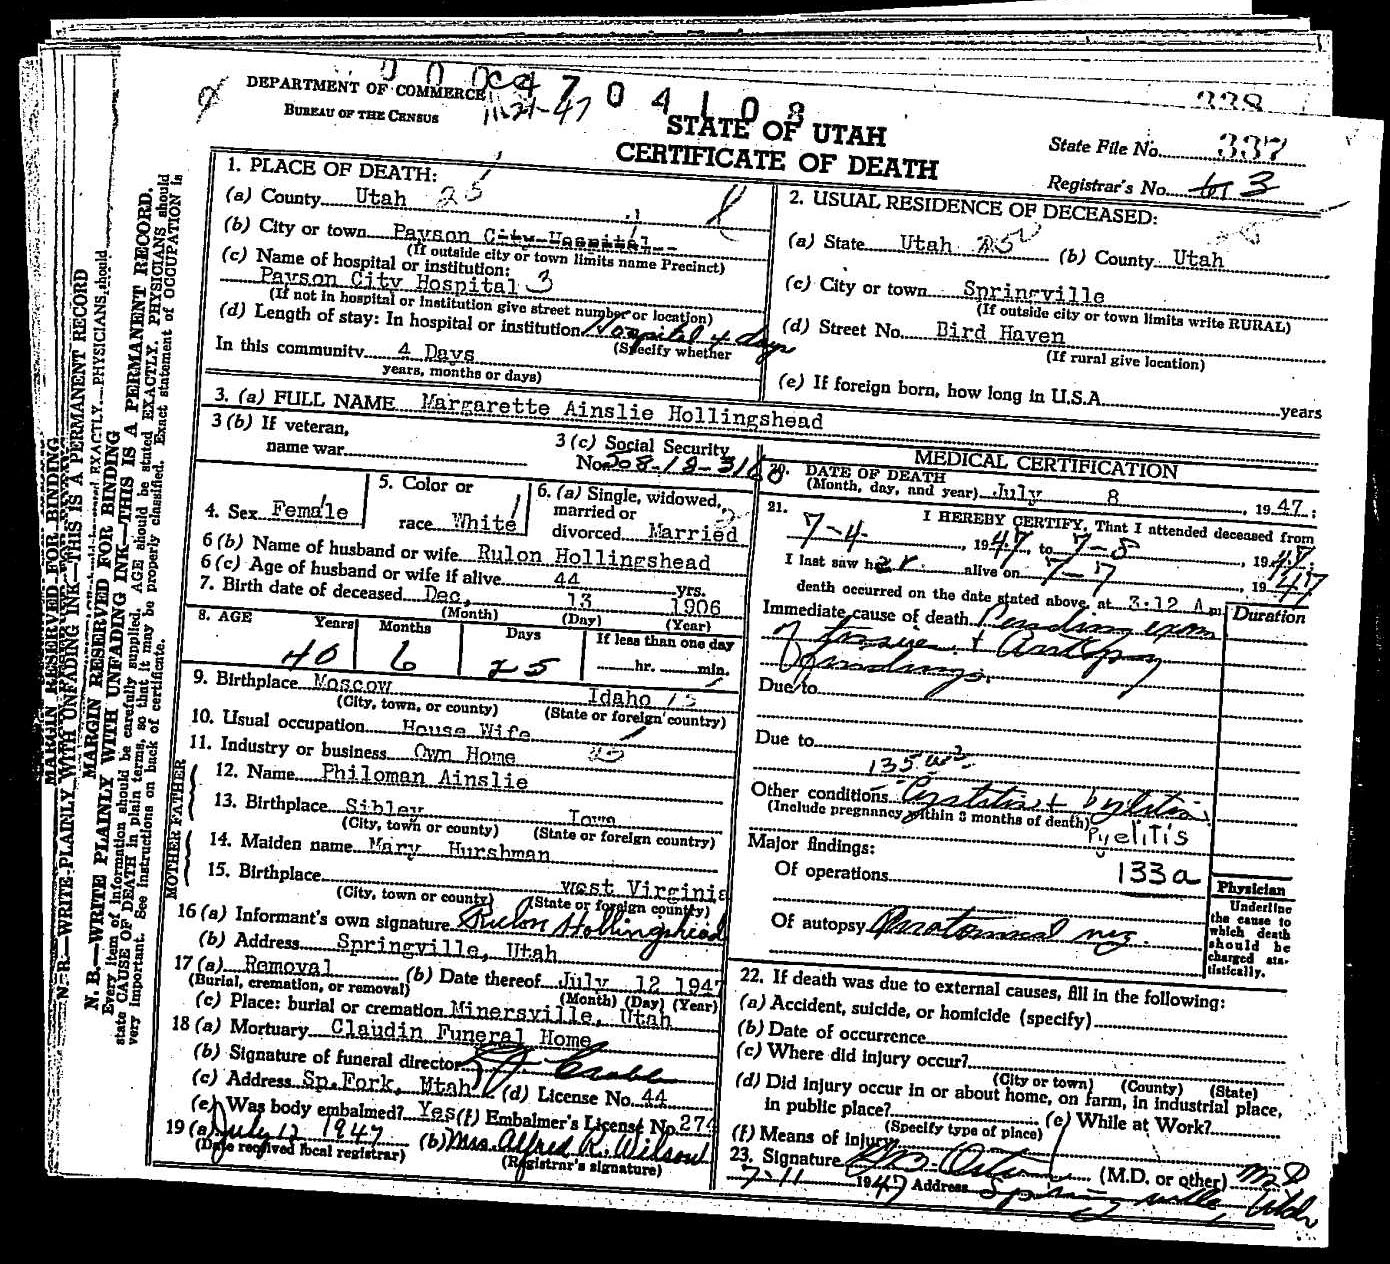 338
DEPARTMENT OF COMMERCE
BUREAU OF THE CENSUS
4704108
11-21-47
STATE OF UTAH
CERTIFICATE OF DEATH
State File No. 337
Registrar's No. 3
1. PLACE OF DEATH:
(a) County Utah 25
(b) City or town Payson City Hospital
(If outside city or town limits name Precinct)
(c) Name of hospital or institution:
Payson City Hospital 3
(If not in hospital or institution give street number or location)
(d) Length of stay: In hospital or institution Hospital 4 days
(Specify whether
In this community 4 Days
years, months or days)
2. USUAL RESIDENCE OF DECEASED:
(a) State Utah 25 (b) County Utah
(c) City or town Springville
(If outside city or town limits write RURAL)
(d) Street No. Bird Haven
(If rural give location)
(e) If foreign born, how long in U.S.A. years
3. (a) FULL NAME Margarette Ainslie Hollingshead
3 (b) If veteran,
name war
3 (c) Social Security
No.
4. Sex Female
5. Color or
race White
6. (a) Single, widowed,
married or
divorced Married
6 (b) Name of husband or wife Rulon Hollingshead
6 (c) Age of husband or wife if alive 44 yrs.
7. Birth date of deceased Dec. 13 1906
(Month) (Day) (Year)
8. AGE Years Months Days If less than one day
40 6 25 hr. min.
9. Birthplace Moscow Idaho 13
(City, town, or county) (State or foreign country)
10. Usual occupation House Wife
11. Industry or business Own Home
FATHER
12. Name Philoman Ainslie
13. Birthplace Sibley Iowa
(City, town or county) (State or foreign country)
MOTHER
14. Maiden name Mary Hurshman
15. Birthplace West Virginia
(City, town or county) (State or foreign country)
16 (a) Informant's own signature Rulon Hollingshead
(b) Address Springville, Utah
17 (a) Removal (b) Date thereof July 12 1947
(Burial, cremation, or removal) (Month) (Day) (Year)
(c) Place: burial or cremation Minersville, Utah
18 (a) Mortuary Claudin Funeral Home
(b) Signature of funeral director
(c) Address Sp. Fork, Utah (d) License No. 44
(e) Was body embalmed? Yes (f) Embalmer's License No. 274
19 (a) July 12 1947 (b) Mrs. Alfred R. Wilson
(Date received local registrar) (Registrar's signature)
MEDICAL CERTIFICATION
20. DATE OF DEATH
(Month, day, and year) July 8, 1947.
21. I HEREBY CERTIFY, That I attended deceased from
7-4, 1947, to 7-8, 1947.
I last saw her alive on 7-7, 1947
death occurred on the date stated above, at 3:12 A m.
Duration
Immediate cause of death Pending exam
of tissue + Autopsy
findings.
Due to
Due to
Other conditions Cystitis +
(Include pregnancy within 3 months of death)
Pyelitis
Major findings:
Of operations 133a
Of autopsy Anatomical neg.
Physician
Underline
the cause to
which death
should be
charged sta-
tistically.
22. If death was due to external causes, fill in the following:
(a) Accident, suicide, or homicide (specify)
(b) Date of occurrence
(c) Where did injury occur?
(City or town) (County) (State)
(d) Did injury occur in or about home, on farm, in industrial place,
in public place? (e) While at Work?
(Specify type of place)
(f) Means of injury
23. Signature (M.D. or other) M D
7-11 1947 Address Springville, Utah
MARGIN RESERVED FOR BINDING
N. B.—WRITE PLAINLY WITH UNFADING INK—THIS IS A PERMANENT RECORD.
Every item of information should be carefully supplied. AGE should be stated EXACTLY. PHYSICIANS should
state CAUSE OF DEATH in plain terms, so that it may be properly classified. Exact statement of OCCUPATION is
very important. See instructions on back of certificate.